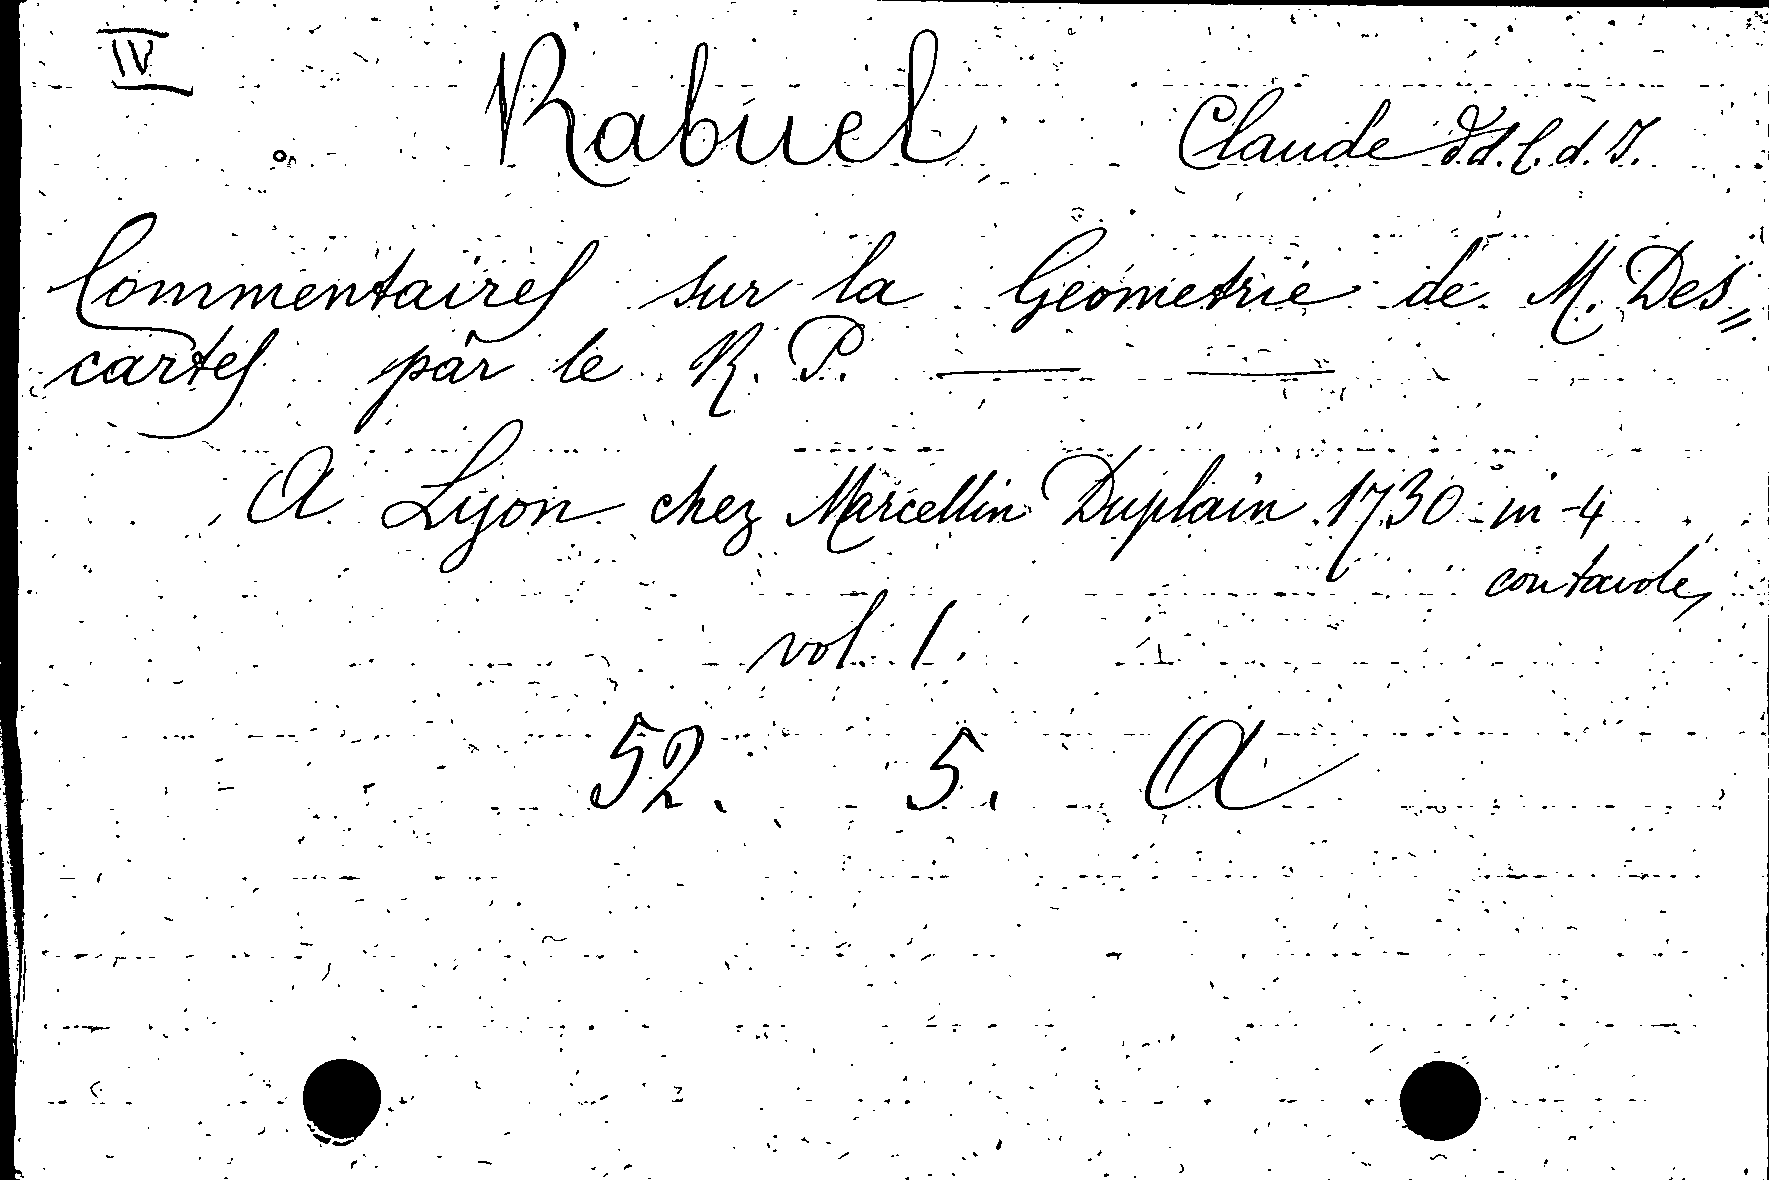 IV
Rabuel Claude d. l. d. J.
Commentaires sur la Géometrie de M. Des=
cartes par le R. P. —— ——
A Lyon chez Marcellin Duplain 1730 in-4
con tavole
vol. 1.
52. 5. A